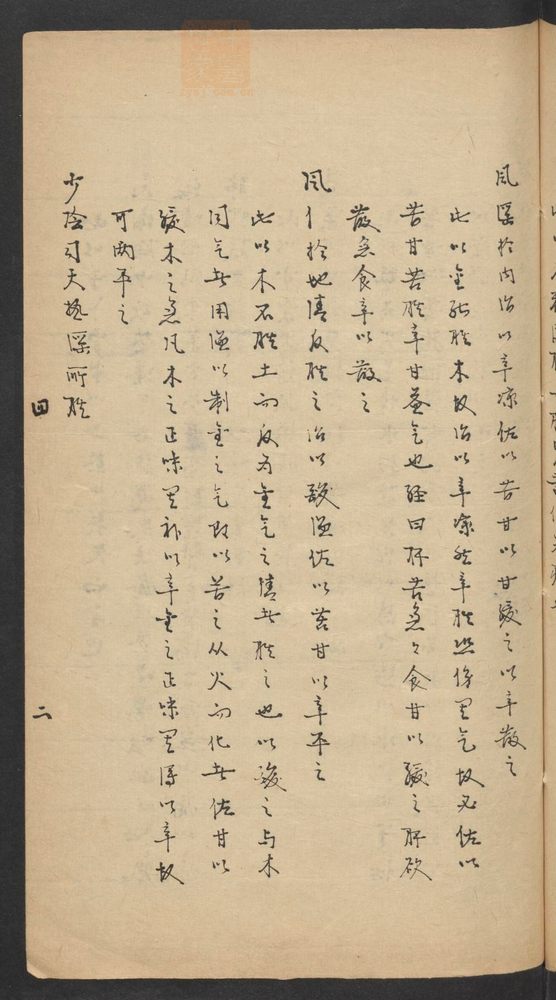 風淫於内治以辛凉佐以苦甘以甘緩之以辛散之
此以金能胜木故治以辛凉然辛胜恐傷其气故必佐以
苦甘苦胜辛甘益气也経曰肝苦急急食甘以緩之肝欲
散急食辛以散之
風行於地清反胜之治以酸溫佐以苦甘以辛平之
此以木不胜土而反为金气之清者胜之也以酸之与木
同气者用溫以制金之气取以苦之从火而化者佐甘以
緩木之急凡木之正味其补以辛金之正味其瀉以辛故
可两平之
少陰司天热淫所胜
四
二